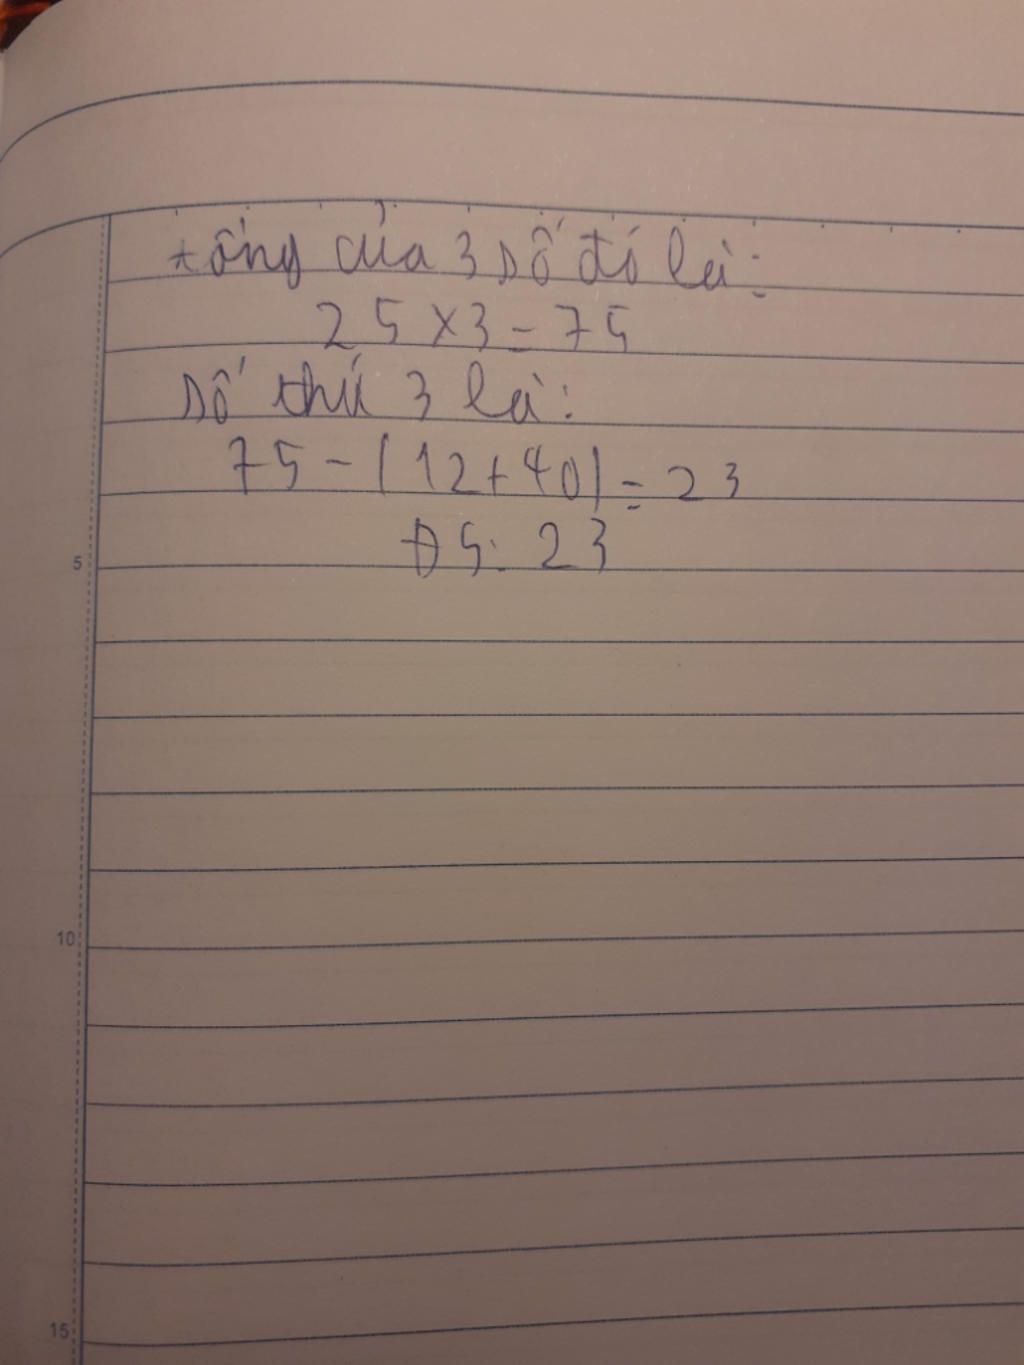 tổng của 3 số đó là:
25 x 3 = 75
số thứ 3 là:
75 - (12 + 40) = 23
ĐS: 23
5
10
15